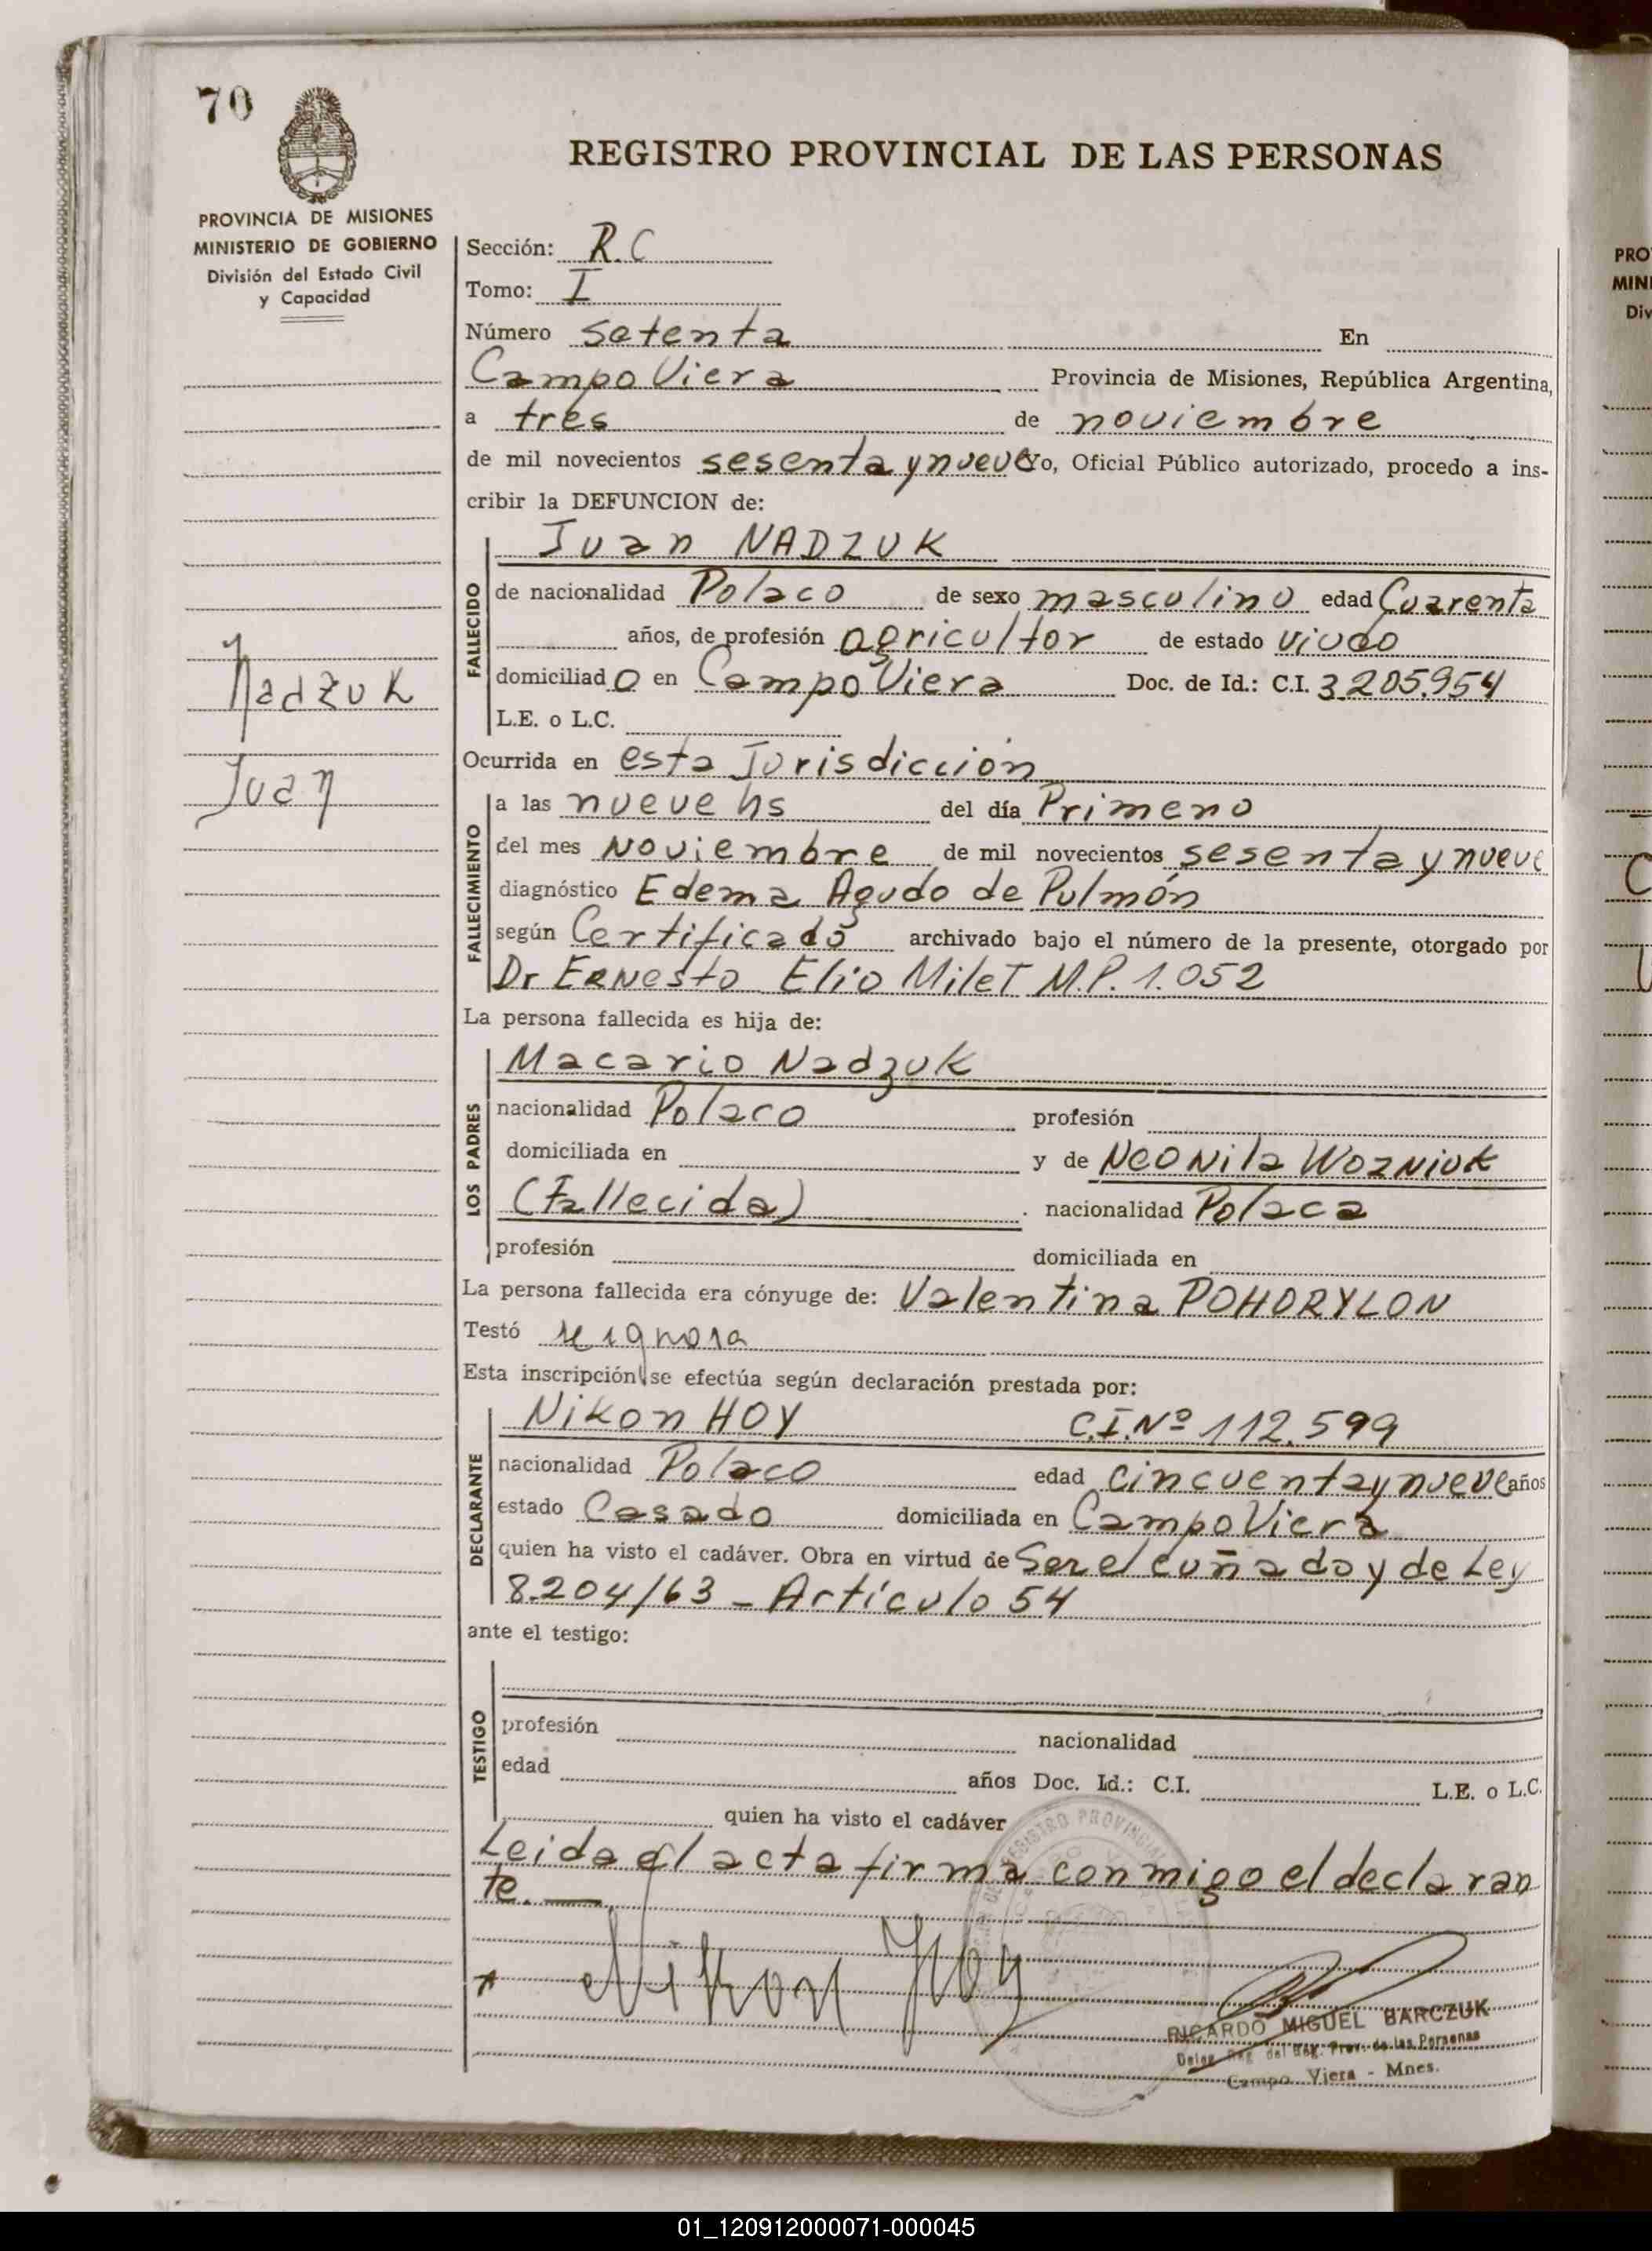 70
REGISTRO PROVINCIAL DE LAS PERSONAS
PROVINCIA DE MISIONES
MINISTERIO DE GOBIERNO
División del Estado Civil
y Capacidad
Sección: R.C
Tomo: I
Número setenta En
Campo Viera Provincia de Misiones, República Argentina,
a tres de noviembre
de mil novecientos sesenta y nueve Yo, Oficial Público autorizado, procedo a ins-
cribir la DEFUNCION de:
Juan NADZUK
FALLECIDO
de nacionalidad Polaco de sexo masculino edad Cuarenta
años, de profesión agricultor de estado viudo
domiciliado en Campo Viera Doc. de Id.: C.I. 3205.954
L.E. o L.C.
Nadzuk
Juan
Ocurrida en esta Jurisdicción
FALLECIMIENTO
a las nueve hs del día Primero
del mes Noviembre de mil novecientos sesenta y nueve
diagnóstico Edema Agudo de Pulmón
según Certificado archivado bajo el número de la presente, otorgado por
Dr ERNesto Elio MileT M.P. 1.052
La persona fallecida es hija de:
LOS PADRES
Macario Nadzuk
nacionalidad Polaco profesión
domiciliada en y de NeoNila WozNiuk
(Fallecida). nacionalidad Polaca
profesión domiciliada en
La persona fallecida era cónyuge de: Valentina POHORYLON
Testó se ignora
Esta inscripción se efectúa según declaración prestada por:
DECLARANTE
Nikon HOY C.I.Nº 112.599
nacionalidad Polaco edad cincuenta y nueve años
estado Casado domiciliada en Campo Viera
quien ha visto el cadáver. Obra en virtud de Ser el cuñado y de Ley
8.204/63 - Artículo 54
ante el testigo:
TESTIGO
profesión nacionalidad
edad años Doc. Id.: C.I. L.E. o L.C.
quien ha visto el cadáver
Leida el acta firma conmigo el declaran
te.
Nikon Hoy
RICARDO MIGUEL BARCZUK
Deleg. Reg. del Reg. Prov. de las Personas
Campo Viera - Mnes.
PRO
MIN
Div
01_120912000071-000045